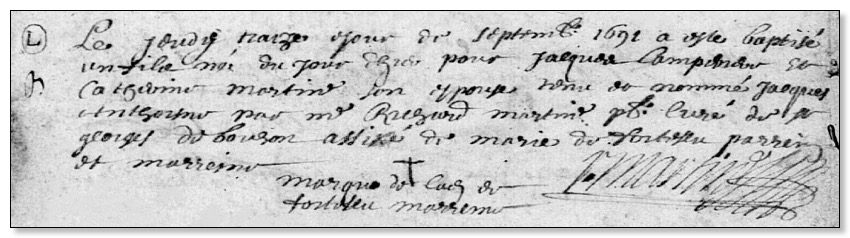 L
Le jeudy traize ejour de septembre 1691 a este baptisé
un fils né du jour d'hier pour Jacques Lamperiere et
Catherine Martine son espouse tenu et nommé Jacques
Anthoine par me Richard Martine pbr Curé de St
georges de bouzon assisté de marie de torteau parrein
et marreine
marque de lad de
torteau marreine